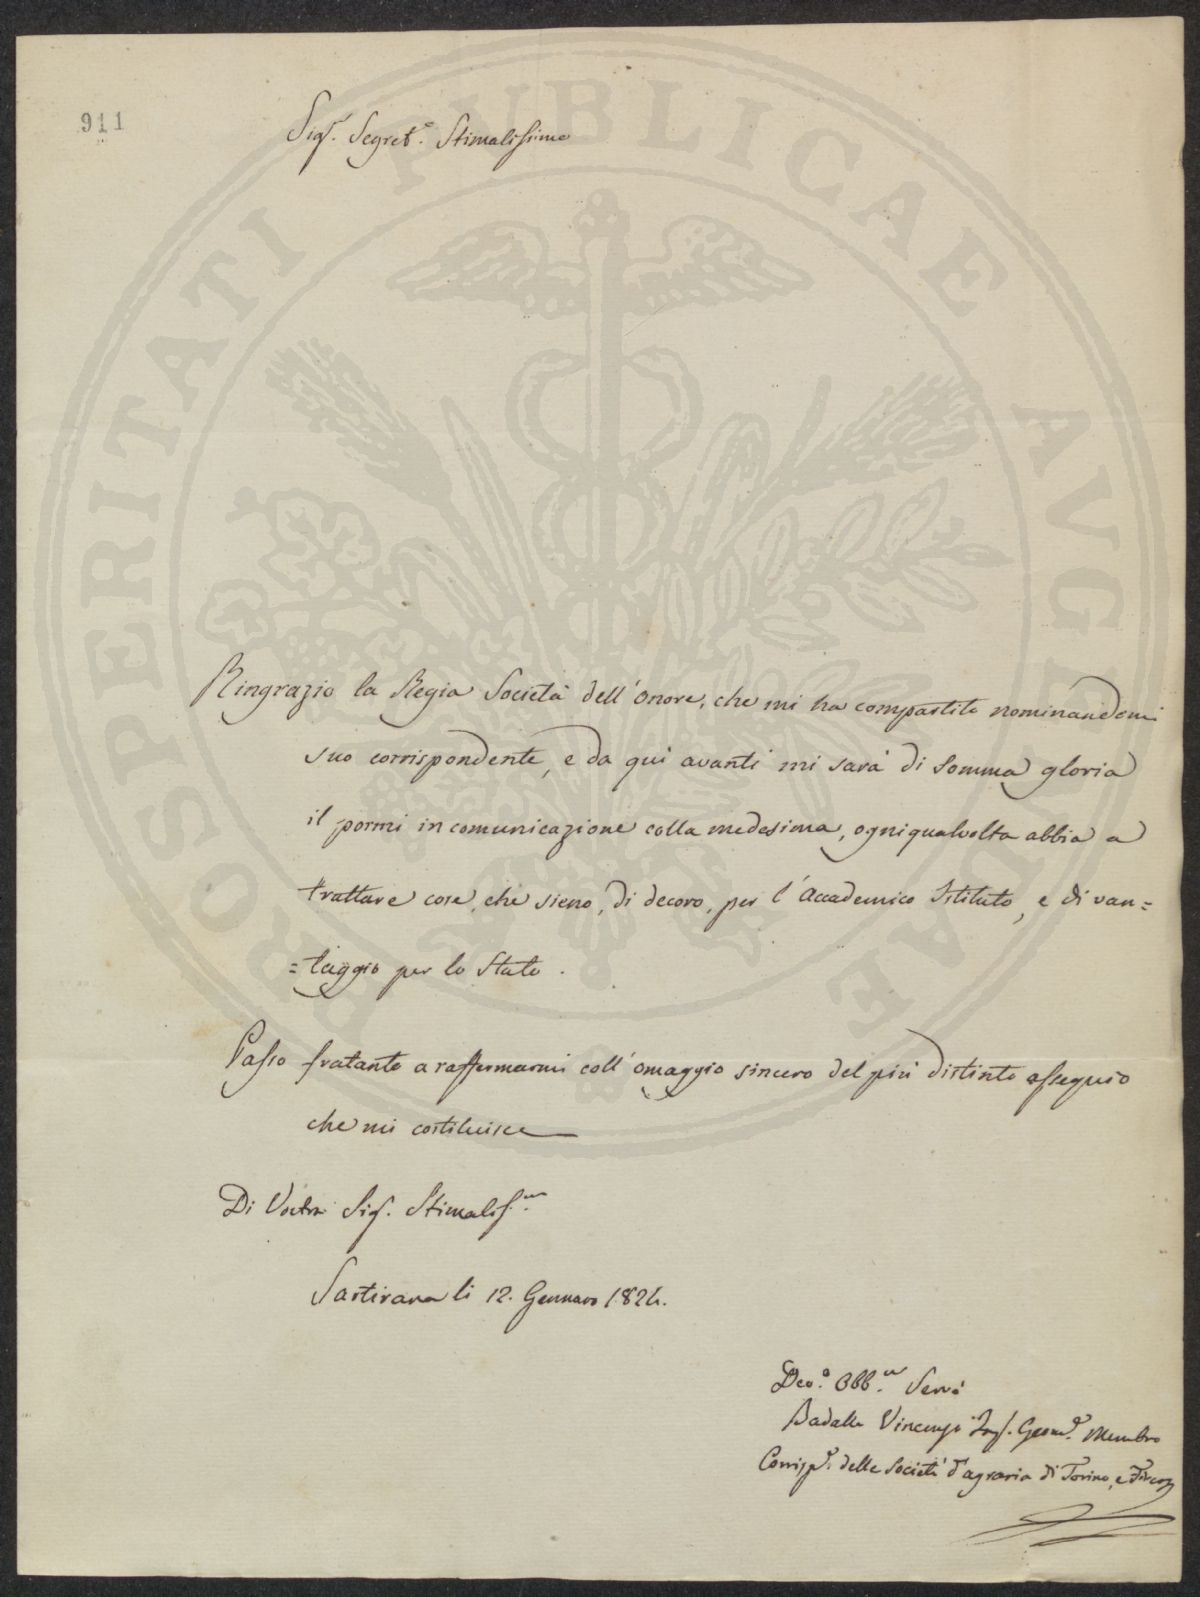 911
Sigr. Segret.e Stimatissimo
PROSPERITATI PUBLICAE AVGENDAE
Ringrazio la Regia Società dell'onore, che mi ha compartito nominandomi
suo corrispondente, e da qui avanti mi sarà di somma gloria
il pormi in comunicazione colla medesima, ogniqualvolta abbia a
trattare cose, che sieno, di decoro, per l'Accademico Istituto, e di van=
=taggio per lo Stato.
Passo fratanto a raffermarmi coll'omaggio sincero del più distinto ossequio
che mi costituisce
Di Vostra Sig. Stimatis.ma
Sartirana li 12. Gennaro 1824.
Dev.o Obb.mo Servo
Badalla Vincenzo Ing. Geom.a Membro
Corrisp.e delle Società d'agraria di Torino, e